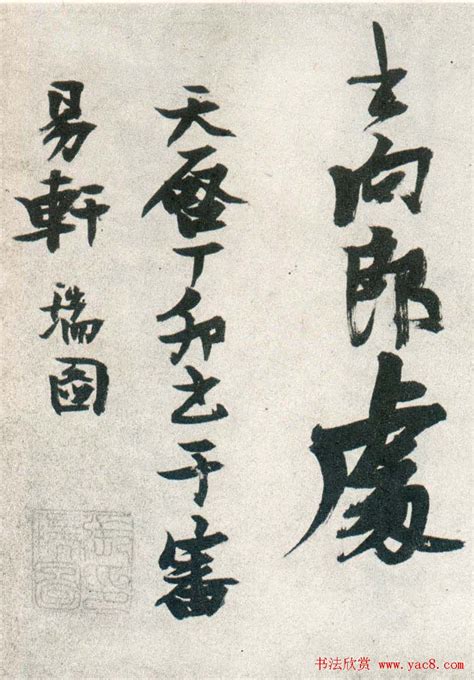 向郎處
天啓丁卯書于審
易軒 瑞圖
书法欣赏 www.yac8.com